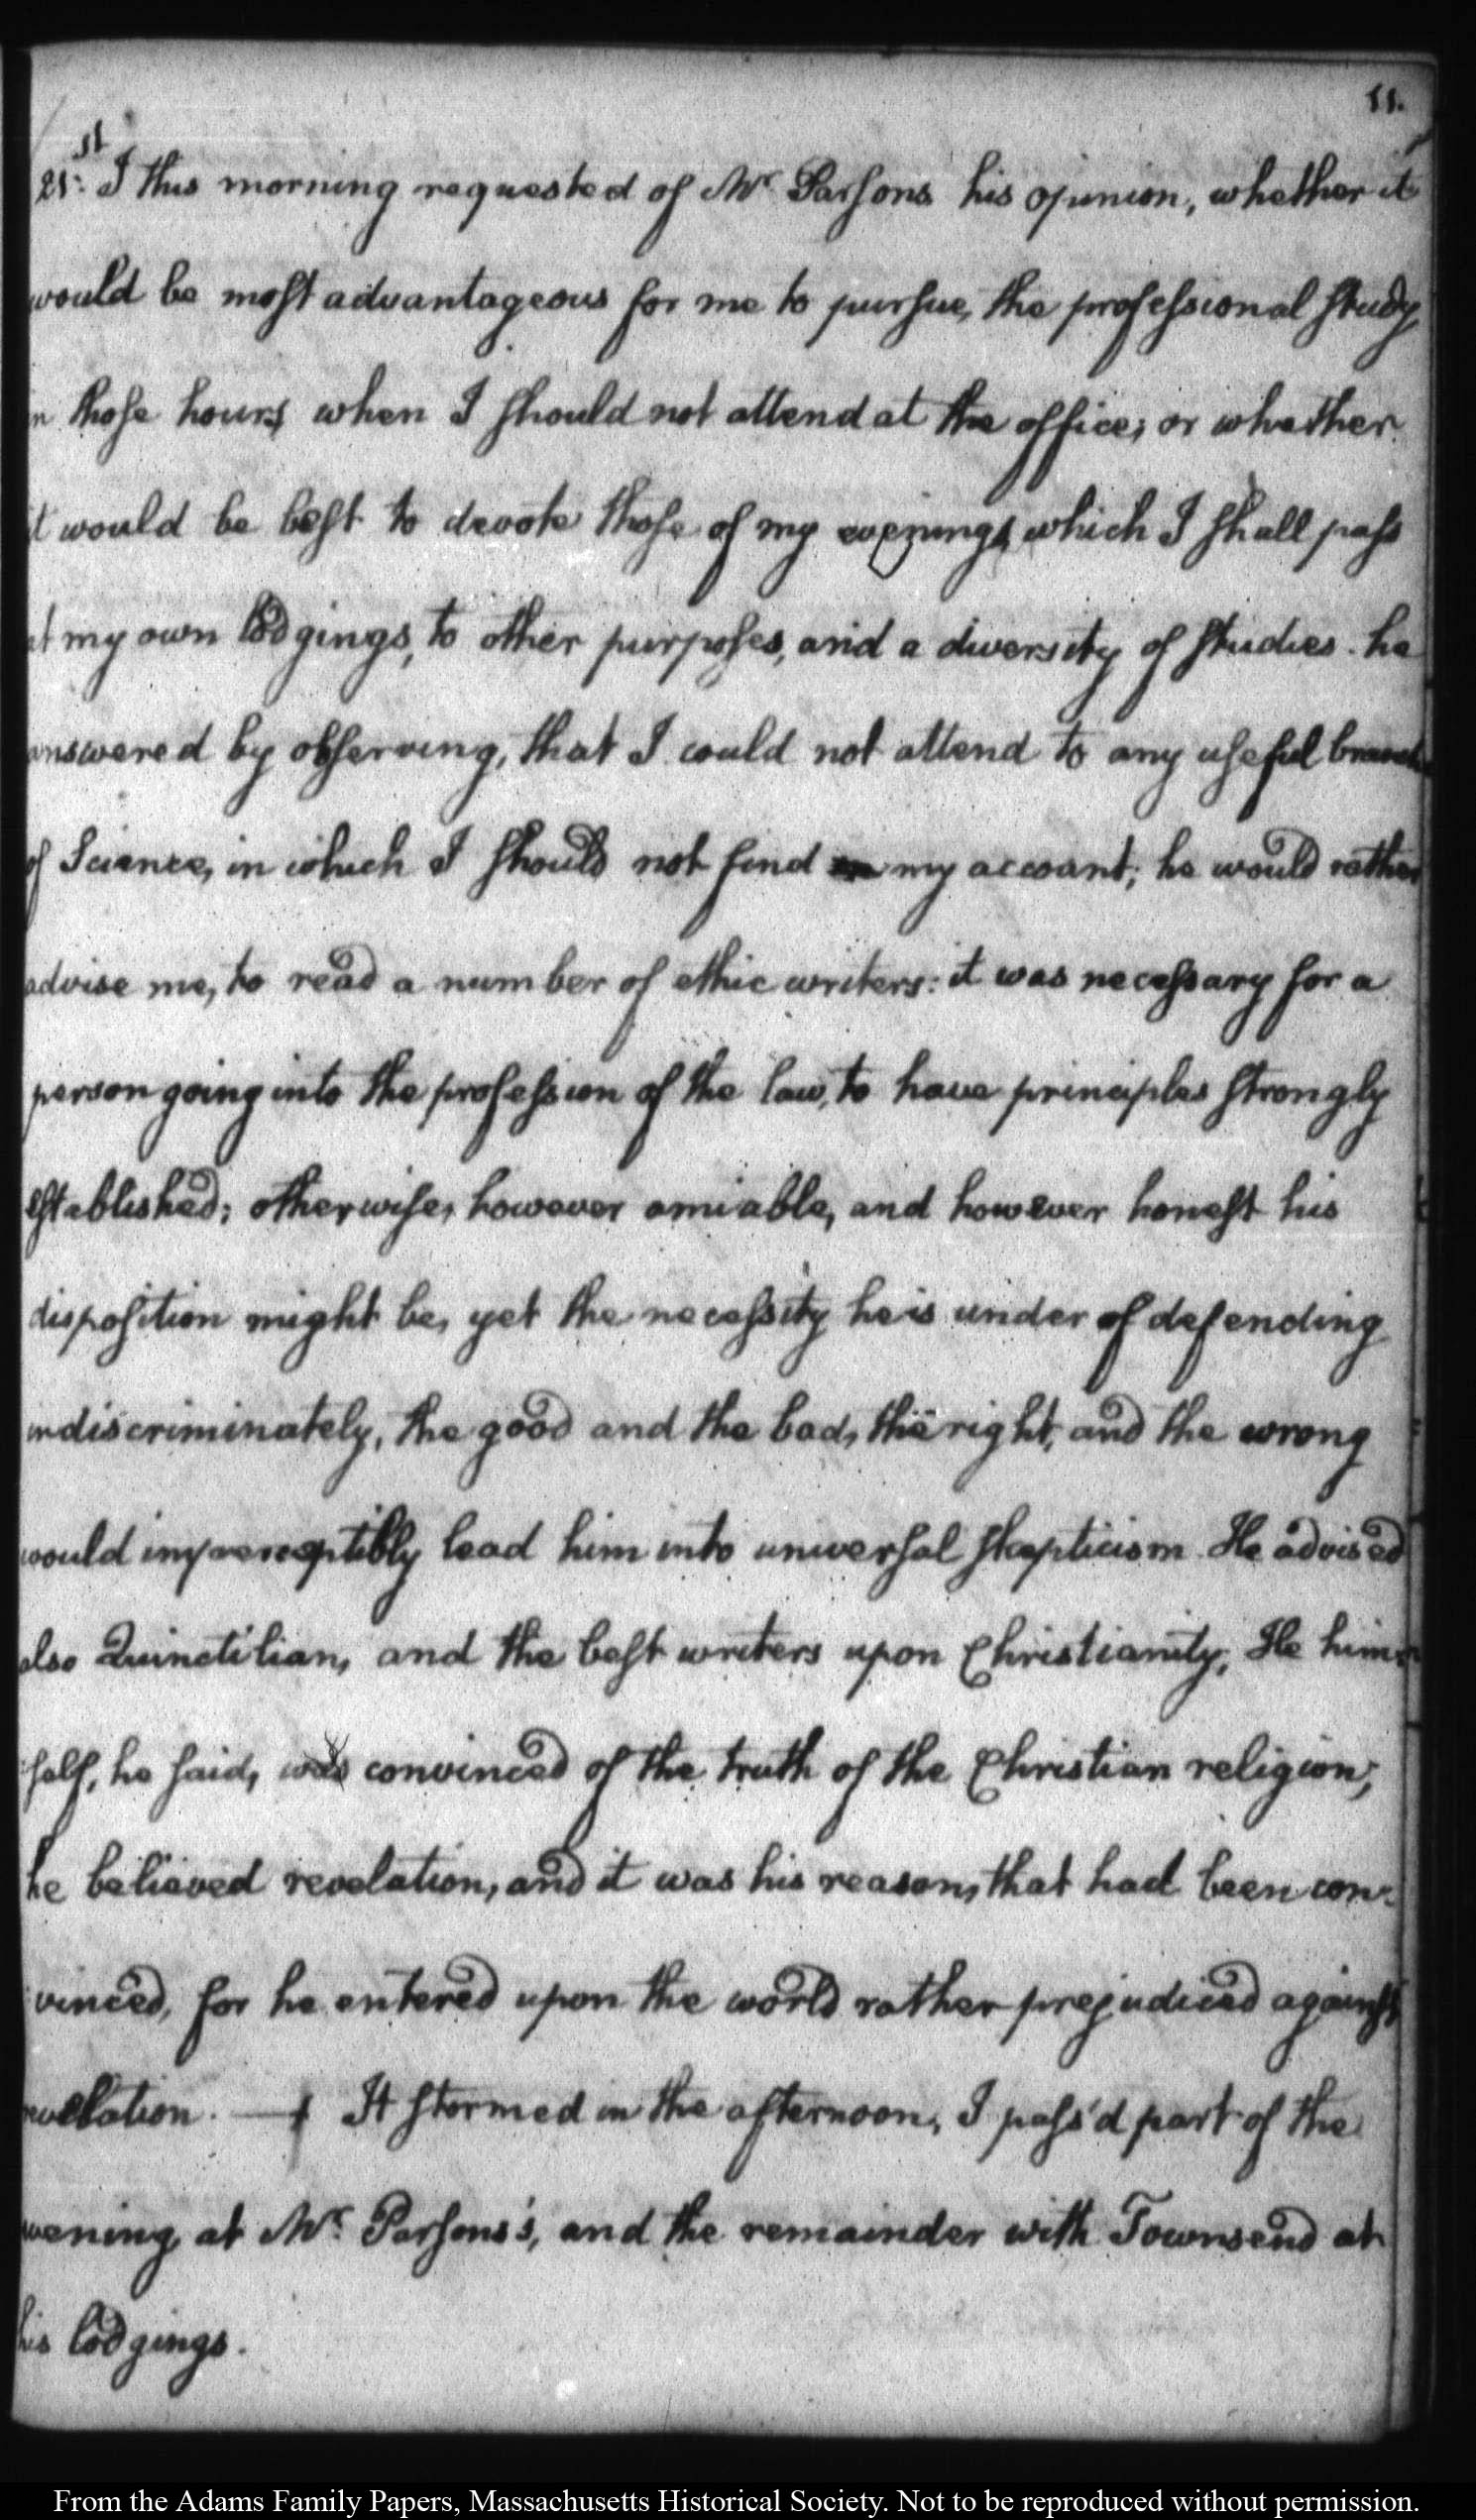 11.
21st. I this morning requested of Mr Parsons his opinion, whether it
would be most advantageous for me to pursue, the professional study
in those hours, when I should not attend at the office; or whether
it would be best to devote those of my evenings, which I shall pass
at my own lodgings, to other purposes, and a diversity of studies. he
answered by observing, that I could not attend to any useful branch
of Science, in which I should not find my account; he would rather
advise me, to read a number of ethic writers: it was necessary for a
person going into the profession of the law, to have principles strongly
established; otherwise, however amiable, and however honest his
disposition might be, yet the necessity he is under of defending
indiscriminately, the good and the bad, the right, and the wrong
would imperceptibly lead him into universal skepticism. He advised
also Quinctilian, and the best writers upon Christianity. He him-
self, he said, was convinced of the truth of the Christian religion;
he believed revelation, and it was his reason, that had been con-
vinced, for he entered upon the world rather prejudiced against
revelation. — It stormed in the afternoon, I pass'd part of the
evening, at Mr. Parsons's, and the remainder with Townsend at
his lodgings.
From the Adams Family Papers, Massachusetts Historical Society. Not to be reproduced without permission.